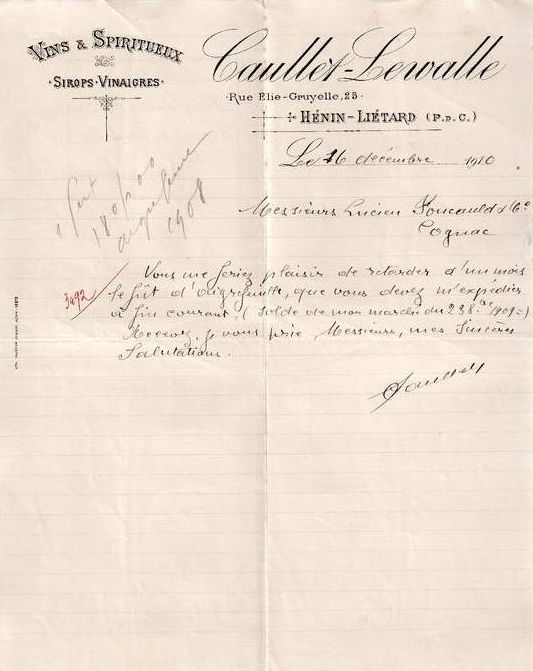 VINS & SPIRITUEUX
SIROPS·VINAIGRES
Caullet-Lewalle
Rue Elie-Gruyelle, 25
HÉNIN-LIÉTARD (P. D. C.)
Le 26 décembre 1910
1 fût
180/00
aigrefeuille
1908
Messieurs Lucien Foucauld & Cie
Cognac
3492
Vous me feriez plaisir de retarder d'un mois
le fût d'aigrefeuille, que vous devez m'expédier
à fin courant. (Solde de mon marché du 23 8bre 1909)
Recevez, je vous prie, Messieurs, mes sincères
Salutations.